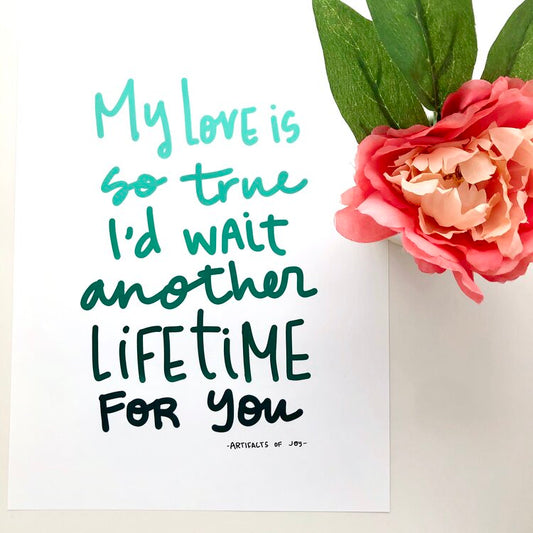 My Love is
so true
I'd wait
another
LiFEtiME
FOR YOU
-ARTIFACTS OF JOY-